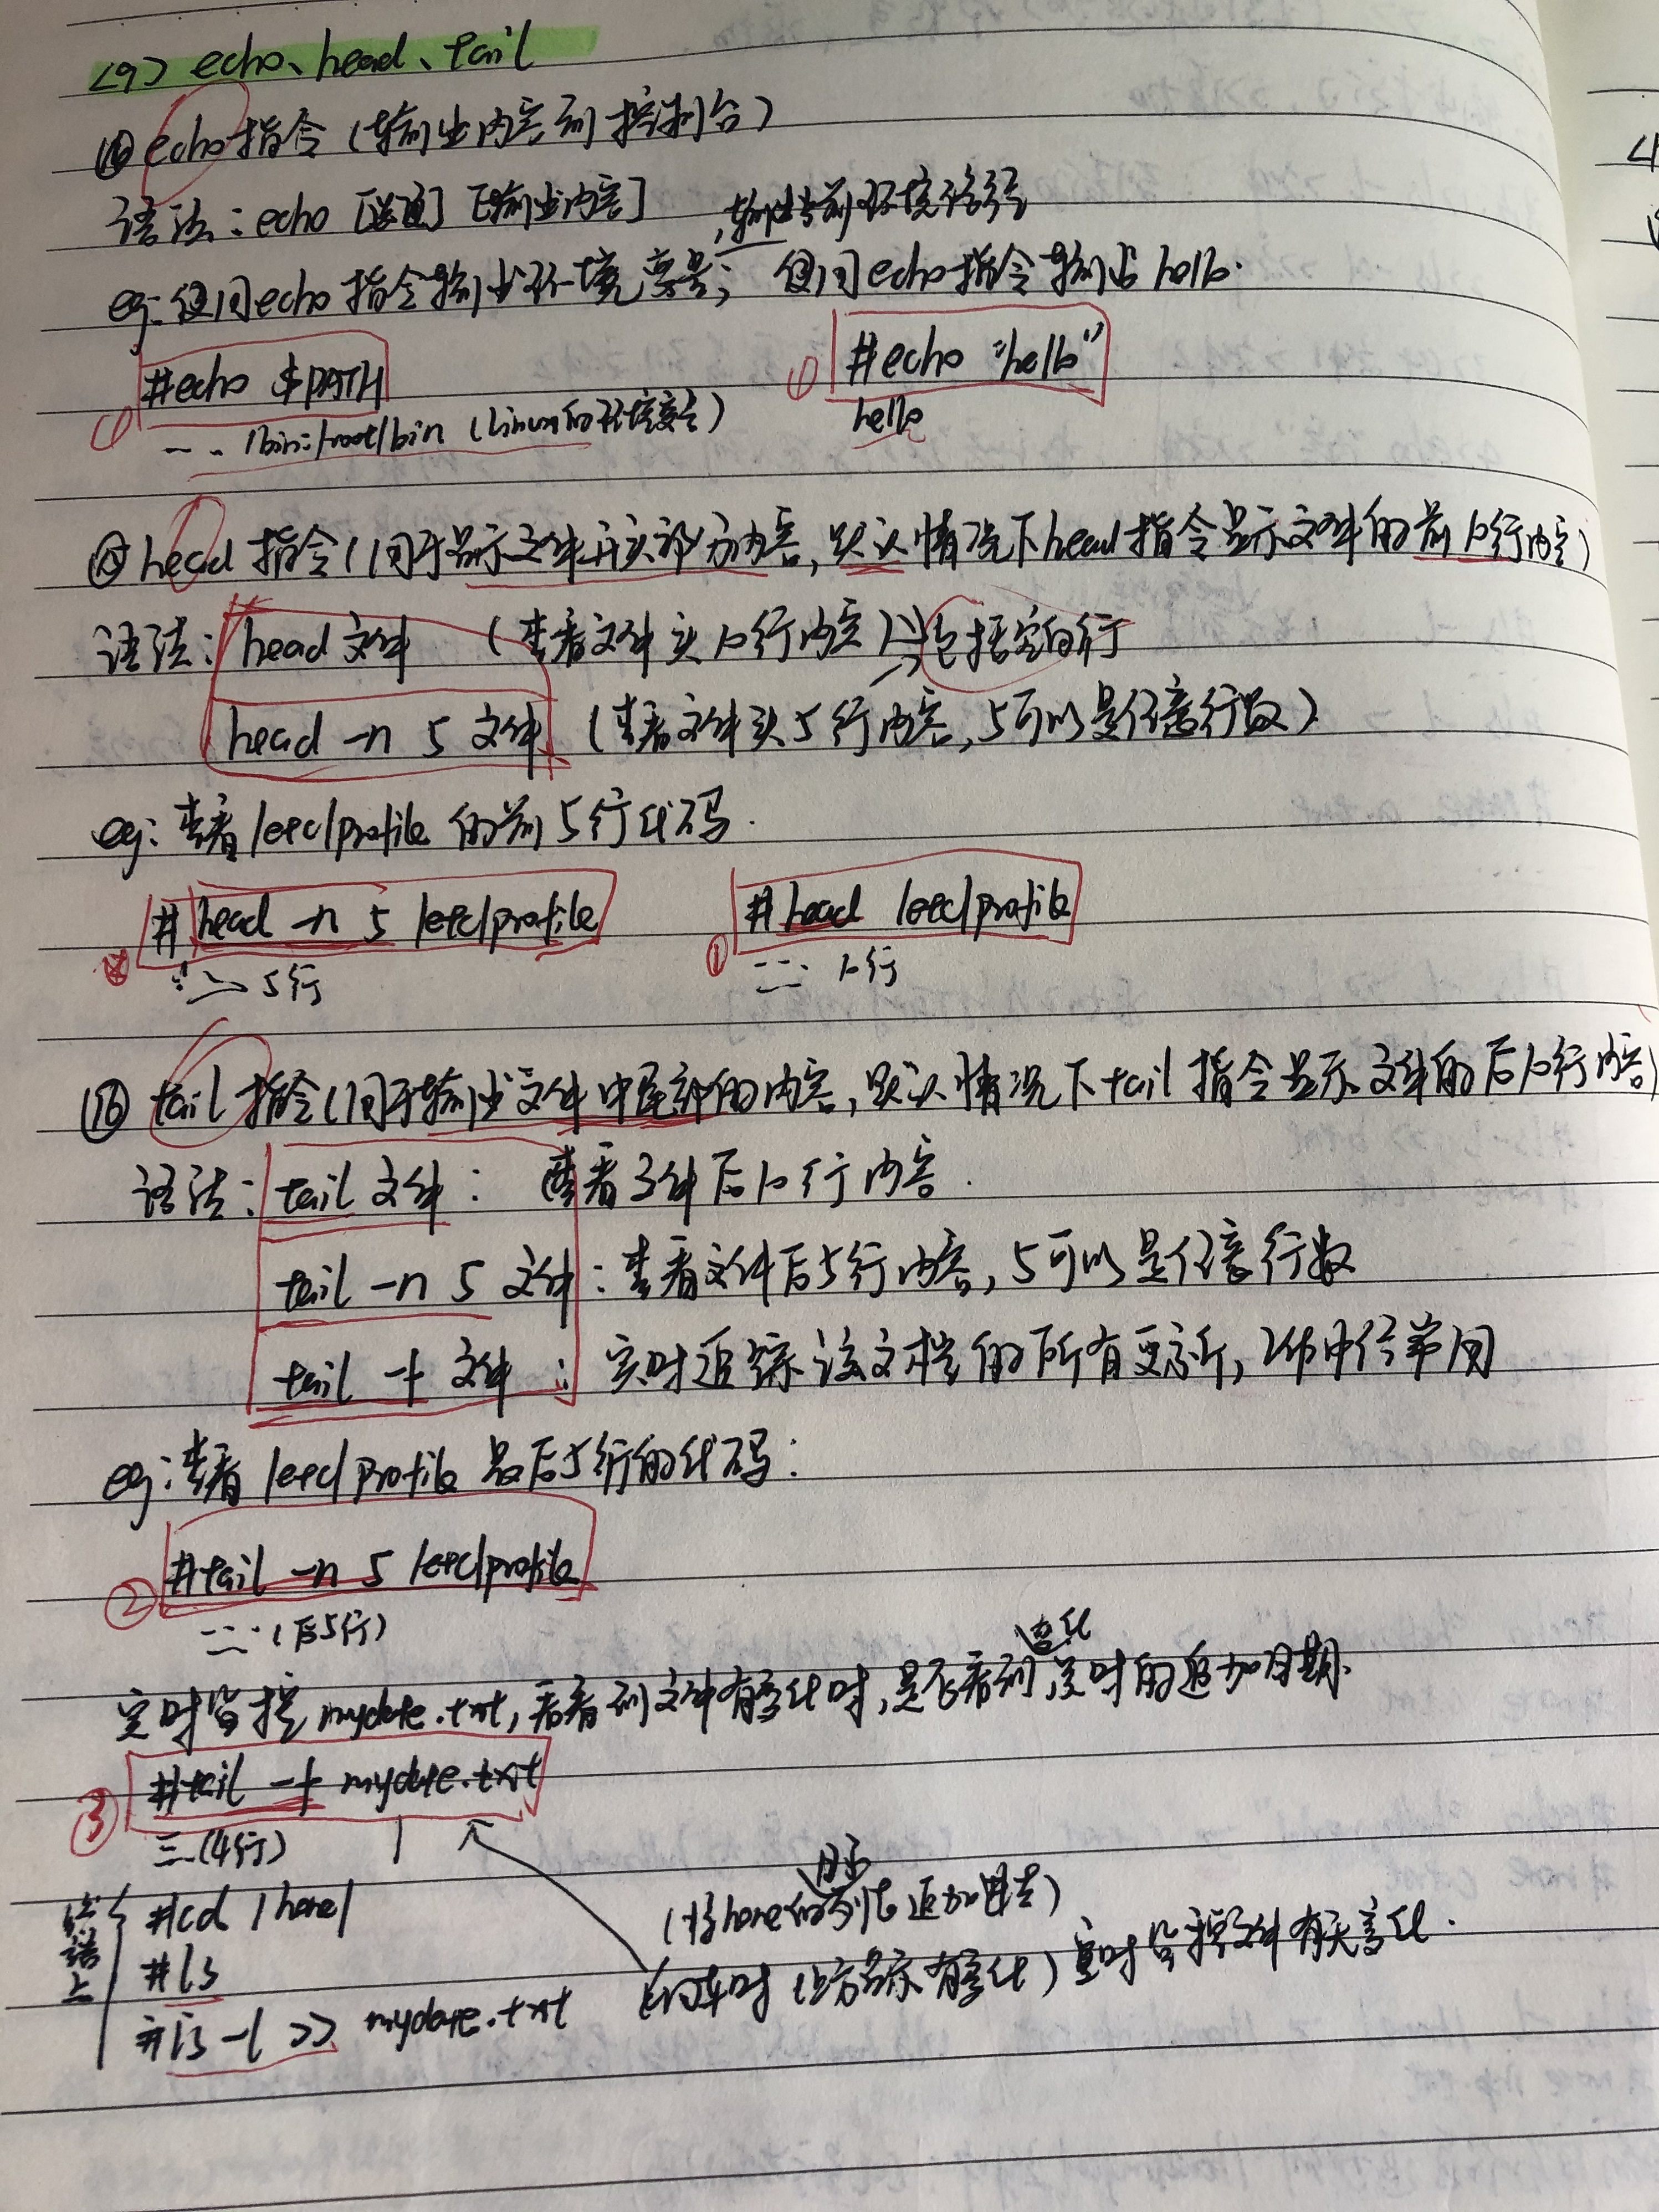 <9> echo、head、tail
⑭ echo指令(输出内容到控制台)
语法:echo [选项] [输出内容]
,输出当前环境路径
eg:使用echo指令输出环境变量; 使用echo指令输出hello.
#echo $PATH
#echo "hello"
... /bin:/root/bin (Linux的环境变量)
hello
⑮ head 指令(用于显示文件开头部分内容,默认情况下head指令显示文件的前10行内容)
语法: head 文件 (查看文件头10行内容) → 包括空白行
head -n 5 文件 (查看文件头5行内容,5可以是任意行数)
eg:查看/etc/profile 的前5行代码.
#head -n 5 /etc/profile
① #head /etc/profile
5行
10行
⑯ tail 指令(用于输出文件中尾部的内容,默认情况下tail指令显示文件的后10行内容)
语法: tail 文件: 查看文件后10行内容.
tail -n 5 文件:查看文件后5行内容,5可以是任意行数
tail -f 文件: 实时追踪该文档的所有更新,工作中经常用
eg:查看 /etc/profile 最后5行的代码:
② #tail -n 5 /etc/profile
... (后5行)
变化
实时监控 mydate.txt,看看到文件有变化时,是否看到,实时的追加日期.
③ #tail -f mydate.txt
三(4行)
#cd /home/
(将home的列表追加进去)
#ls
(上方显示有变化) 实时监控文件有无变化.
#ls -l >> mydate.txt